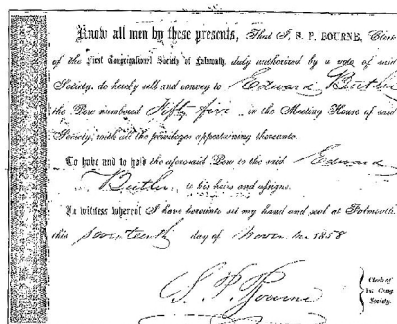 Know all men by these presents, That I, S. P. BOURNE, Clerk
of the First Congregational Society of Falmouth, duly authorized by a vote of said
Society, do hereby sell and convey to Edward Butler
the Pew numbered Fifty five in the Meeting House of said
Society, with all the privileges appertaining thereunto.
To have and to hold the aforesaid Pew to the said Edward
Butler to his heirs and assigns.
In witness whereof I have hereunto set my hand and seal at Falmouth
this Seventeenth day of 1858
S. P. Bourne
Clerk of
1st Cong.
Society.